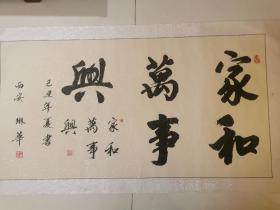 家和
萬事
興
家和
萬事
興
己丑年夏書
西安 琳華